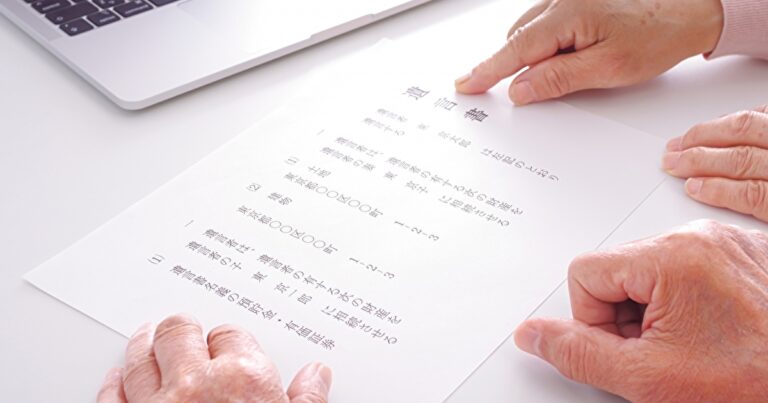 遺言書
遺言者　東　京太郎　は左記のとおり
遺言する
一　遺言者は、遺言者の有する次の財産を
遺言者の妻　東　京子　に相続させる
(1)　土地
東京都〇〇区〇〇町　1-2-3
(2)　建物
東京都〇〇区〇〇町　1-2-3
一　遺言者は、遺言者の有する次の財産を
遺言者の子　東　京一郎　に相続させる
(1)　遺言書名義の預貯金・有価証券